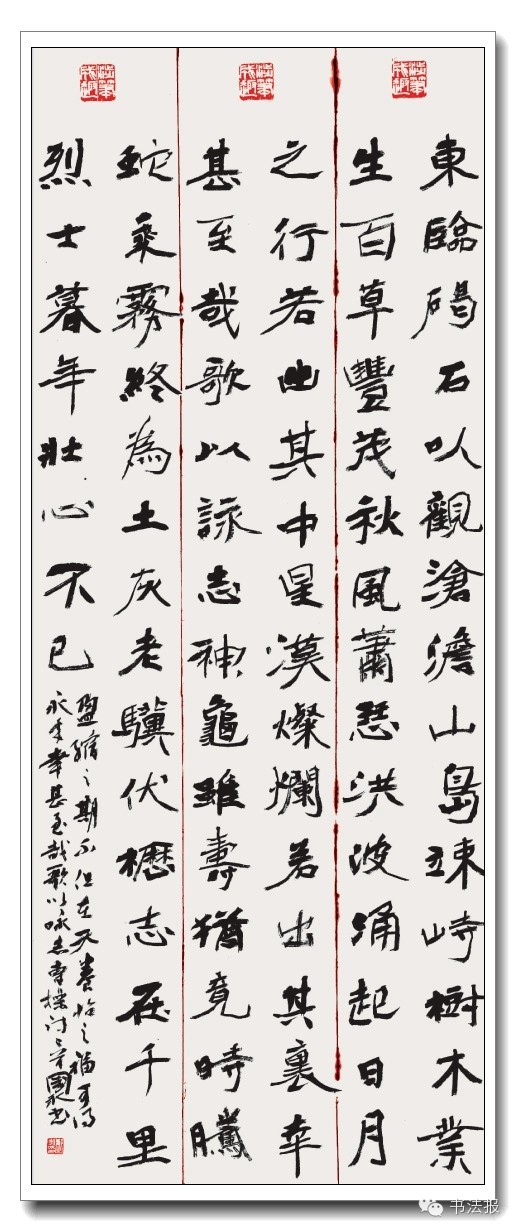 東臨碣石以觀滄澹山島竦峙樹木業
生百草豐茂秋風蕭瑟洪波涌起日月
之行若出其中星漢燦爛若出其裏幸
甚至哉歌以詠志神龜雖壽猶竟時騰
蛇乘霧終為土灰老驥伏櫪志在千里
烈士暮年壯心不已
盈縮之期不但在天養怡之福可得
永年幸甚至哉歌以咏志曹操詩二首國
书法报